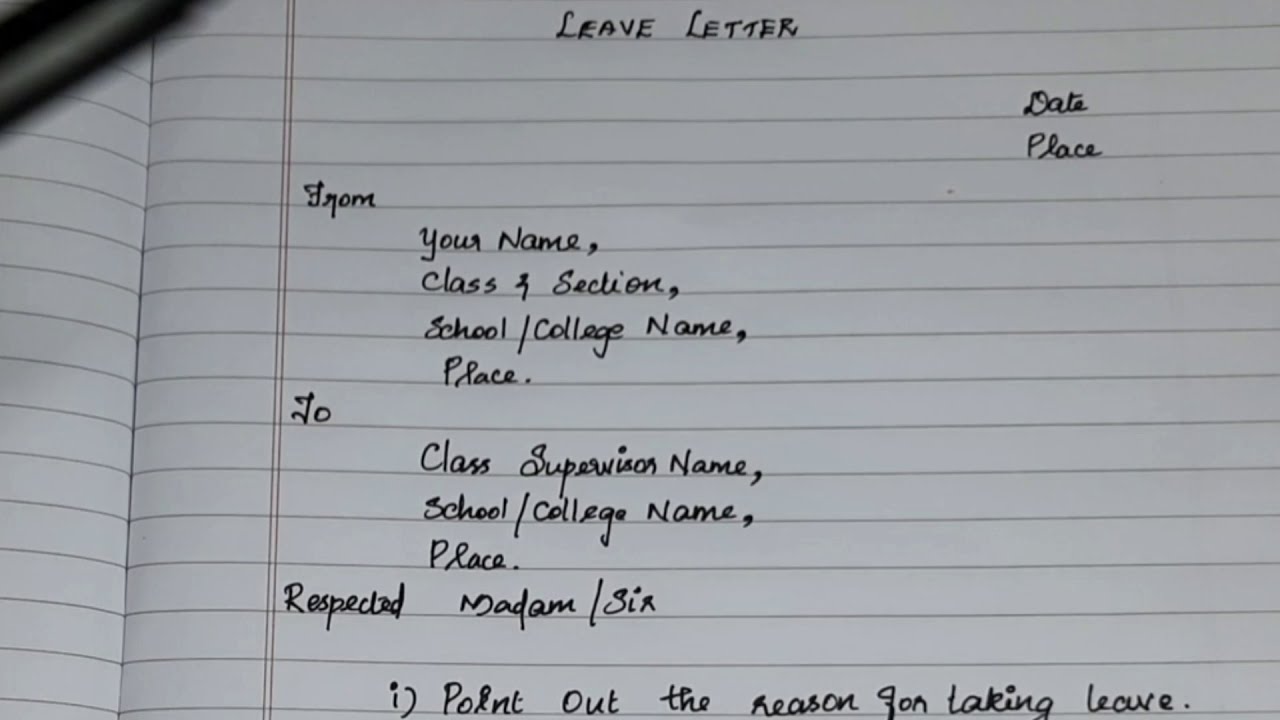 LEAVE LETTER
Date
Place
From
Your Name,
Class & Section,
School/College Name,
Place.
To
Class Supervisor Name,
School/College Name,
Place.
Respected Madam/Sir
i) Point Out the reason for taking leave.